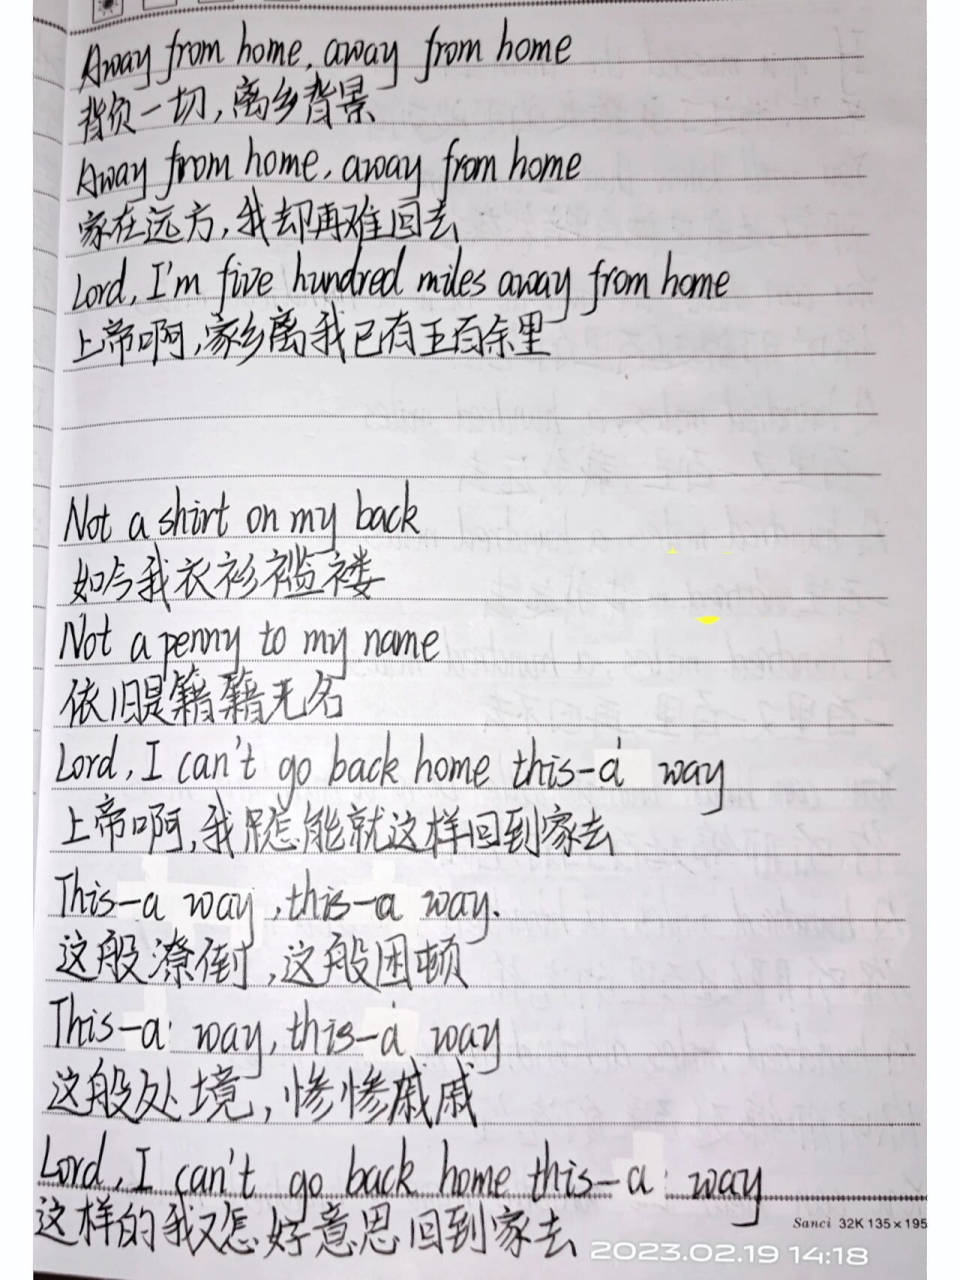 Away from home, away from home
背负一切,离乡背景
Away from home, away from home
家在远方,我却再难回去
Lord, I'm five hundred miles away from home
上帝啊,家乡离我已有五百余里
Not a shirt on my back
如今我衣衫褴褛
Not a penny to my name
依旧是籍籍无名
Lord, I can't go back home this-a way
上帝啊,我怎能就这样回到家去
This-a way, this-a way.
这般潦倒,这般困顿
This-a way, this-a way
这般处境,惨惨戚戚
Lord, I can't go back home this-a way
这样的我又怎好意思回到家去
Sanci 32K 135×195
2023.02.19 14:18